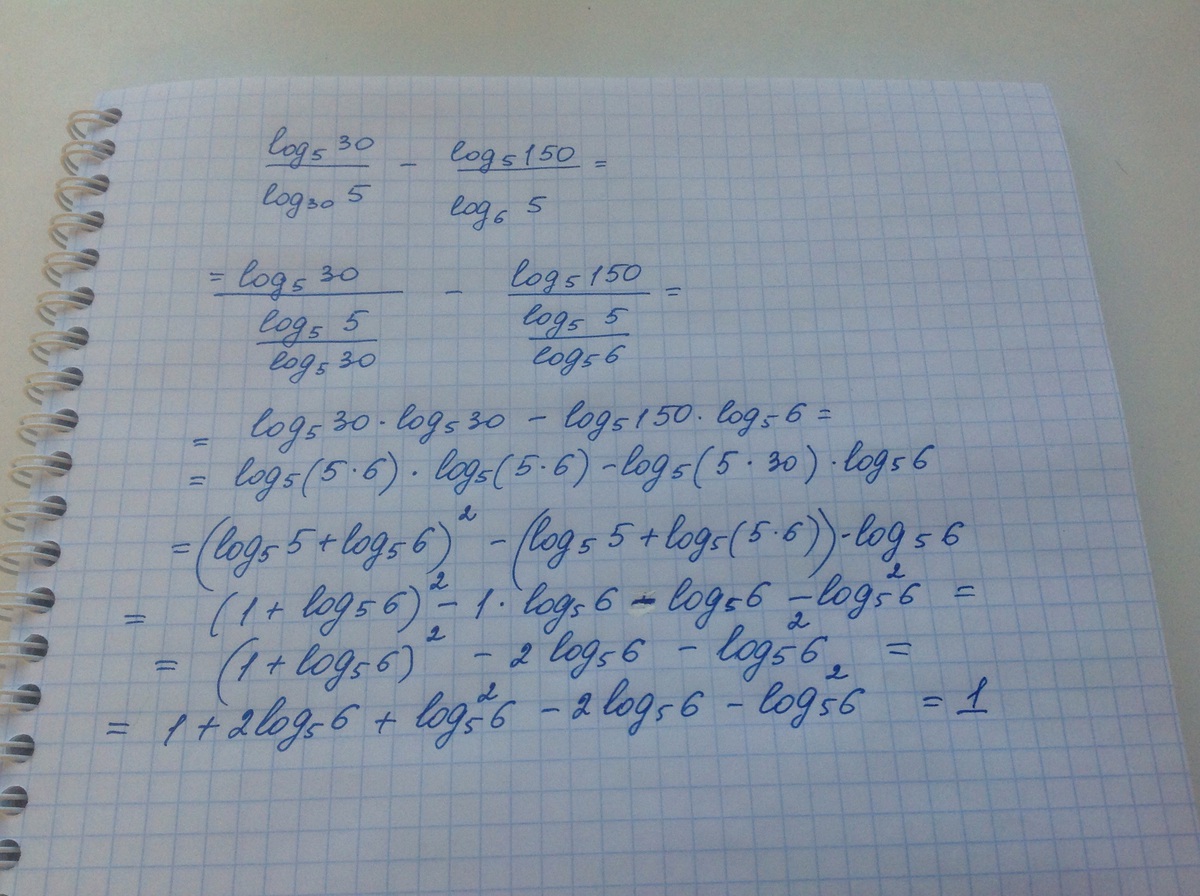 log₅30 / log₃₀5 − log₅150 / log₆5 =
= log₅30 / (log₅5 / log₅30) − log₅150 / (log₅5 / log₅6) =
= log₅30 · log₅30 − log₅150 · log₅6 =
= log₅(5·6) · log₅(5·6) − log₅(5·30) · log₅6
= (log₅5 + log₅6)² − (log₅5 + log₅(5·6)) · log₅6
= (1 + log₅6)² − 1 · log₅6 − log₅6 − log₅²6 =
= (1 + log₅6)² − 2log₅6 − log₅²6 =
= 1 + 2log₅6 + log₅²6 − 2log₅6 − log₅²6 = 1